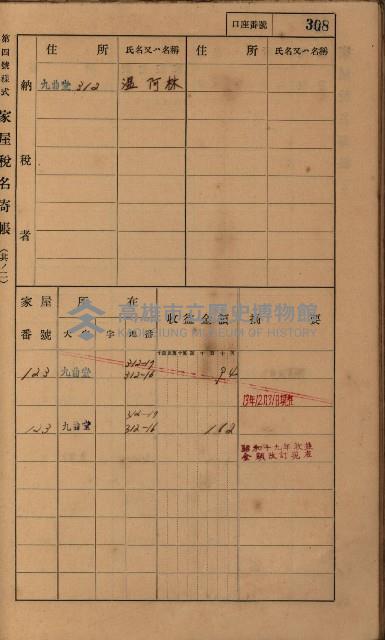 第四號樣式
家屋稅名寄帳
(其ノ二)
口座番號 308
納稅者
住所 氏名又ハ名稱 住所 氏名又ハ名稱
九曲堂 312 溫阿林
高雄市立歷史博物館
KAOHSIUNG MUSEUM OF HISTORY
家屋番號 所在 收益金額 摘要
大字 字 地番
312-17
123 九曲堂 312-16 94
13年12月31日現在
312-17
123 九曲堂 312-16 162
昭和十九年收益
金額改訂現在